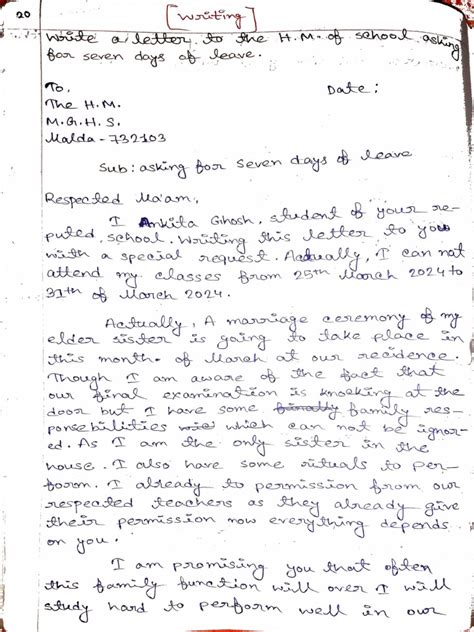 20
[Writing]
Write a letter to the H.M. of school asking
for seven days of leave.
To,
Date:
The H.M.
M.G.H.S.
Malda - 732103
Sub: asking for seven days of leave
Respected Ma'am,
I Ankita Ghosh, student of your re-
puted school. Writing this letter to you
with a special request. Actually, I can not
attend my classes from 25th March 2024 to
31th of March 2024.
Actually, A marriage ceremony of my
elder sister is going to take place in
this month of March at our recidence.
Though I am aware of the fact that
our final examination is knocking at the
door but I have some finally family res-
ponsebilities which can not be ignor-
ed. As I am the only sister in the
house. I also have some rituals to per-
form. I already to permission from our
respected teachers as they already give
their permission now everything depends
on you.
I am promising you that often
this family function will over I will
study hard to perform well in our